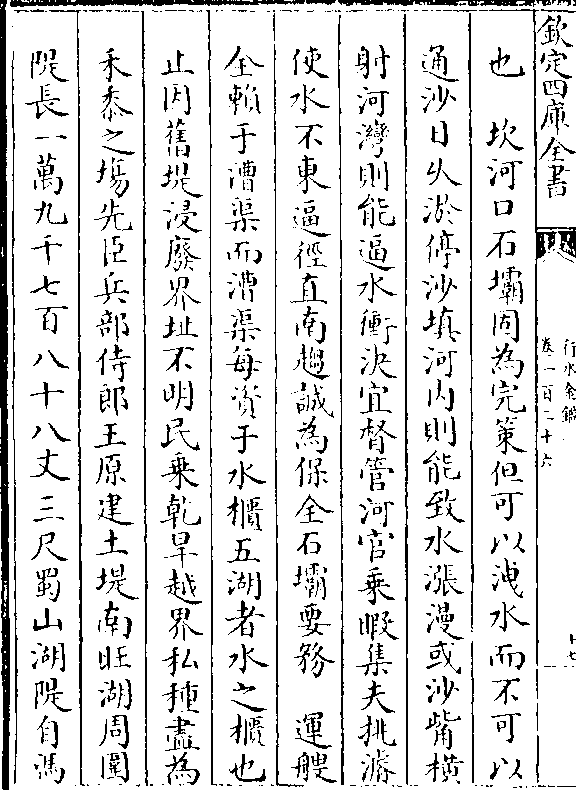 欽定四庫全書
行水金鑑
卷一百二十六
也　坎河口石壩固為完策但可以洩水而不可以
通沙日久淤停沙填河内則能致水漲漫或沙觜横
射河灣則能逼水衝決宜督管河官乗暇集夫挑濬
使水不東逼徑直南趨誠為保全石壩要務　運艘
全賴于漕渠而漕渠每資于水櫃五湖者水之櫃也
止因舊堤浸廢界址不明民乗乾旱越界私種盡為
禾黍之塲先臣兵部侍郎王原建土堤南旺湖周圍
隄長一萬九千七百八十八丈三尺蜀山湖隄自馮